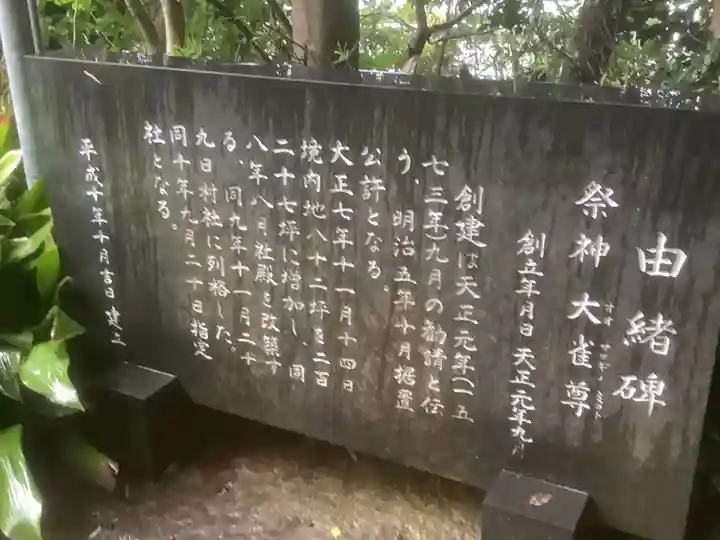 由緒碑
祭神 大雀尊
オオ サザキノ ミコト
創立年月日 天正元年九月
創建は天正元年(一五
七三年)九月の勧請と伝
う、明治五年十月据置
公許となる。
大正七年十一月十四日
境内地八十二坪を二百
二十七坪に増加し、同
八年八月社殿を改築す
る、同九年十一月二十
九日村社に列格した。
同十年九月二十日指定
社となる。
平成十年十月吉日 建立